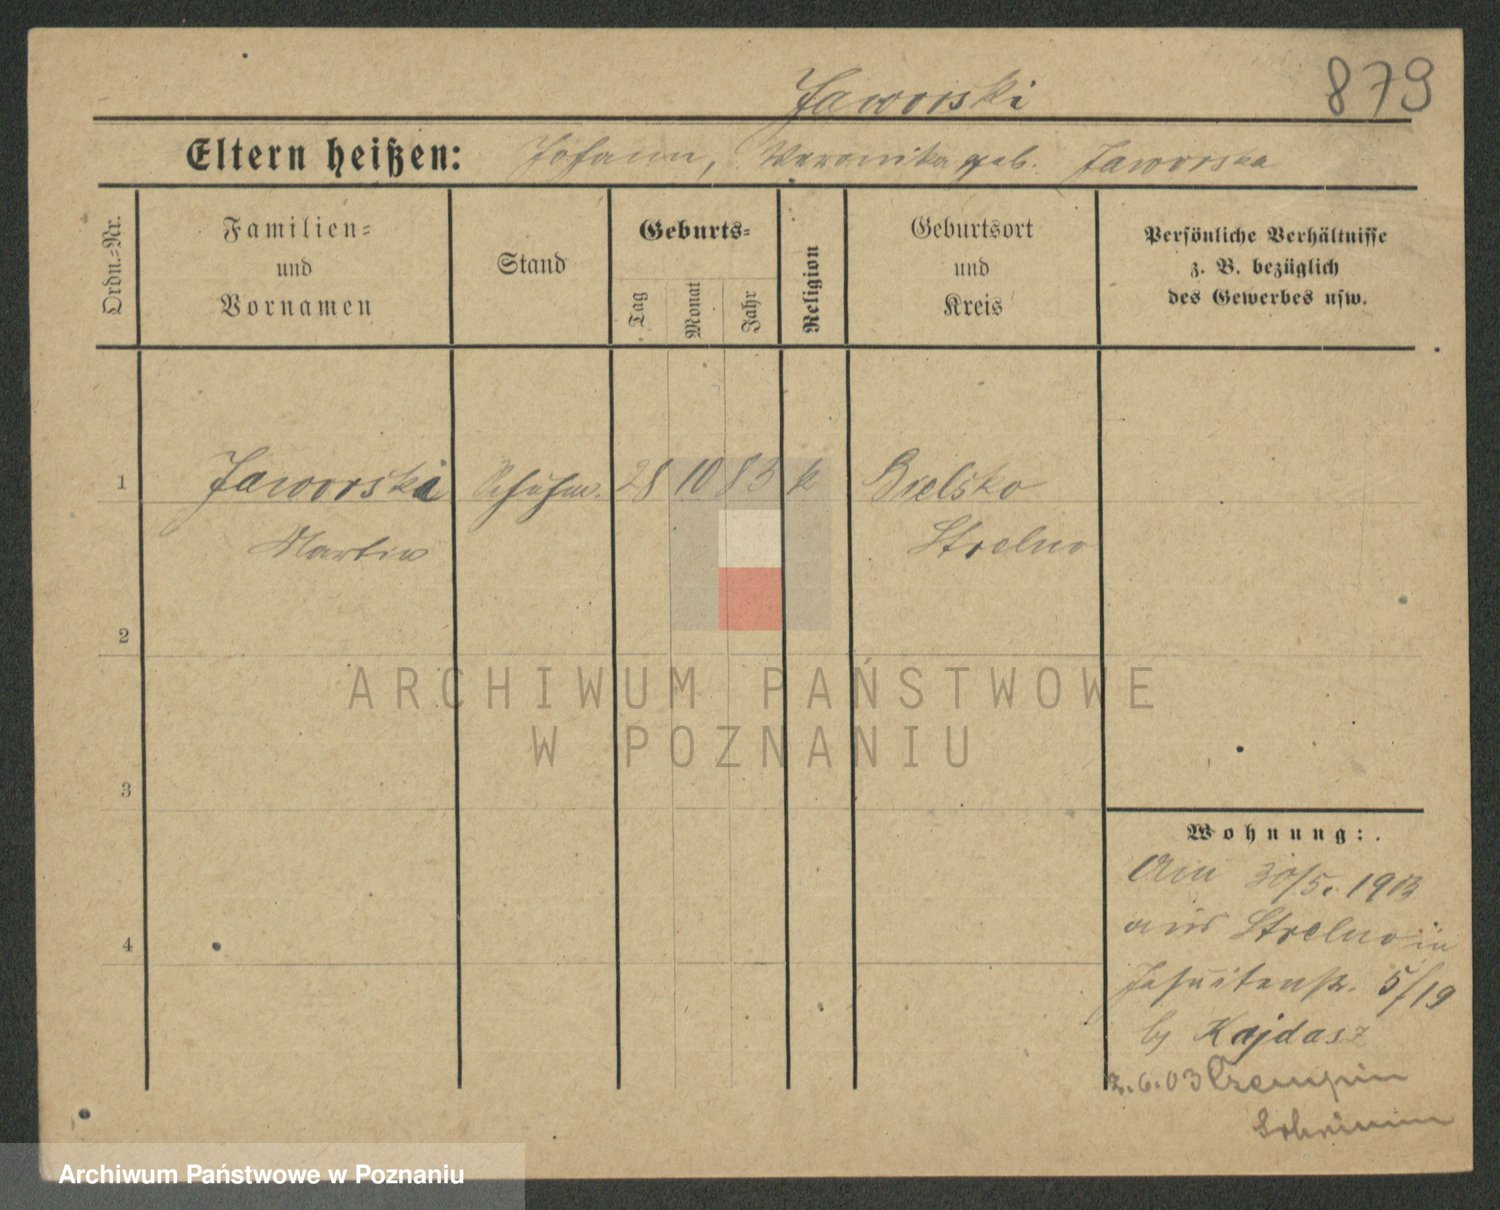 Jaworski
879
Eltern heißen: Johann, Veronika geb. Jaworska
Ordn.-Nr.
Familien-
und
Vornamen
Stand
Geburts-
Tag
Monat
Jahr
Religion
Geburtsort
und
Kreis
Persönliche Verhältnisse
z. B. bezüglich
des Gewerbes usw.
1 Jaworski Schuhm. 28 10 83 k Bielsko
Martin Strelno
2
ARCHIWUM PAŃSTWOWE
W POZNANIU
3
Wohnung:
Am 30/5. 1903
aus Strelno in
4
Jesuitenstr. 5/19
by Kajdasz
2.6.03 Czempin
Archiwum Państwowe w Poznaniu